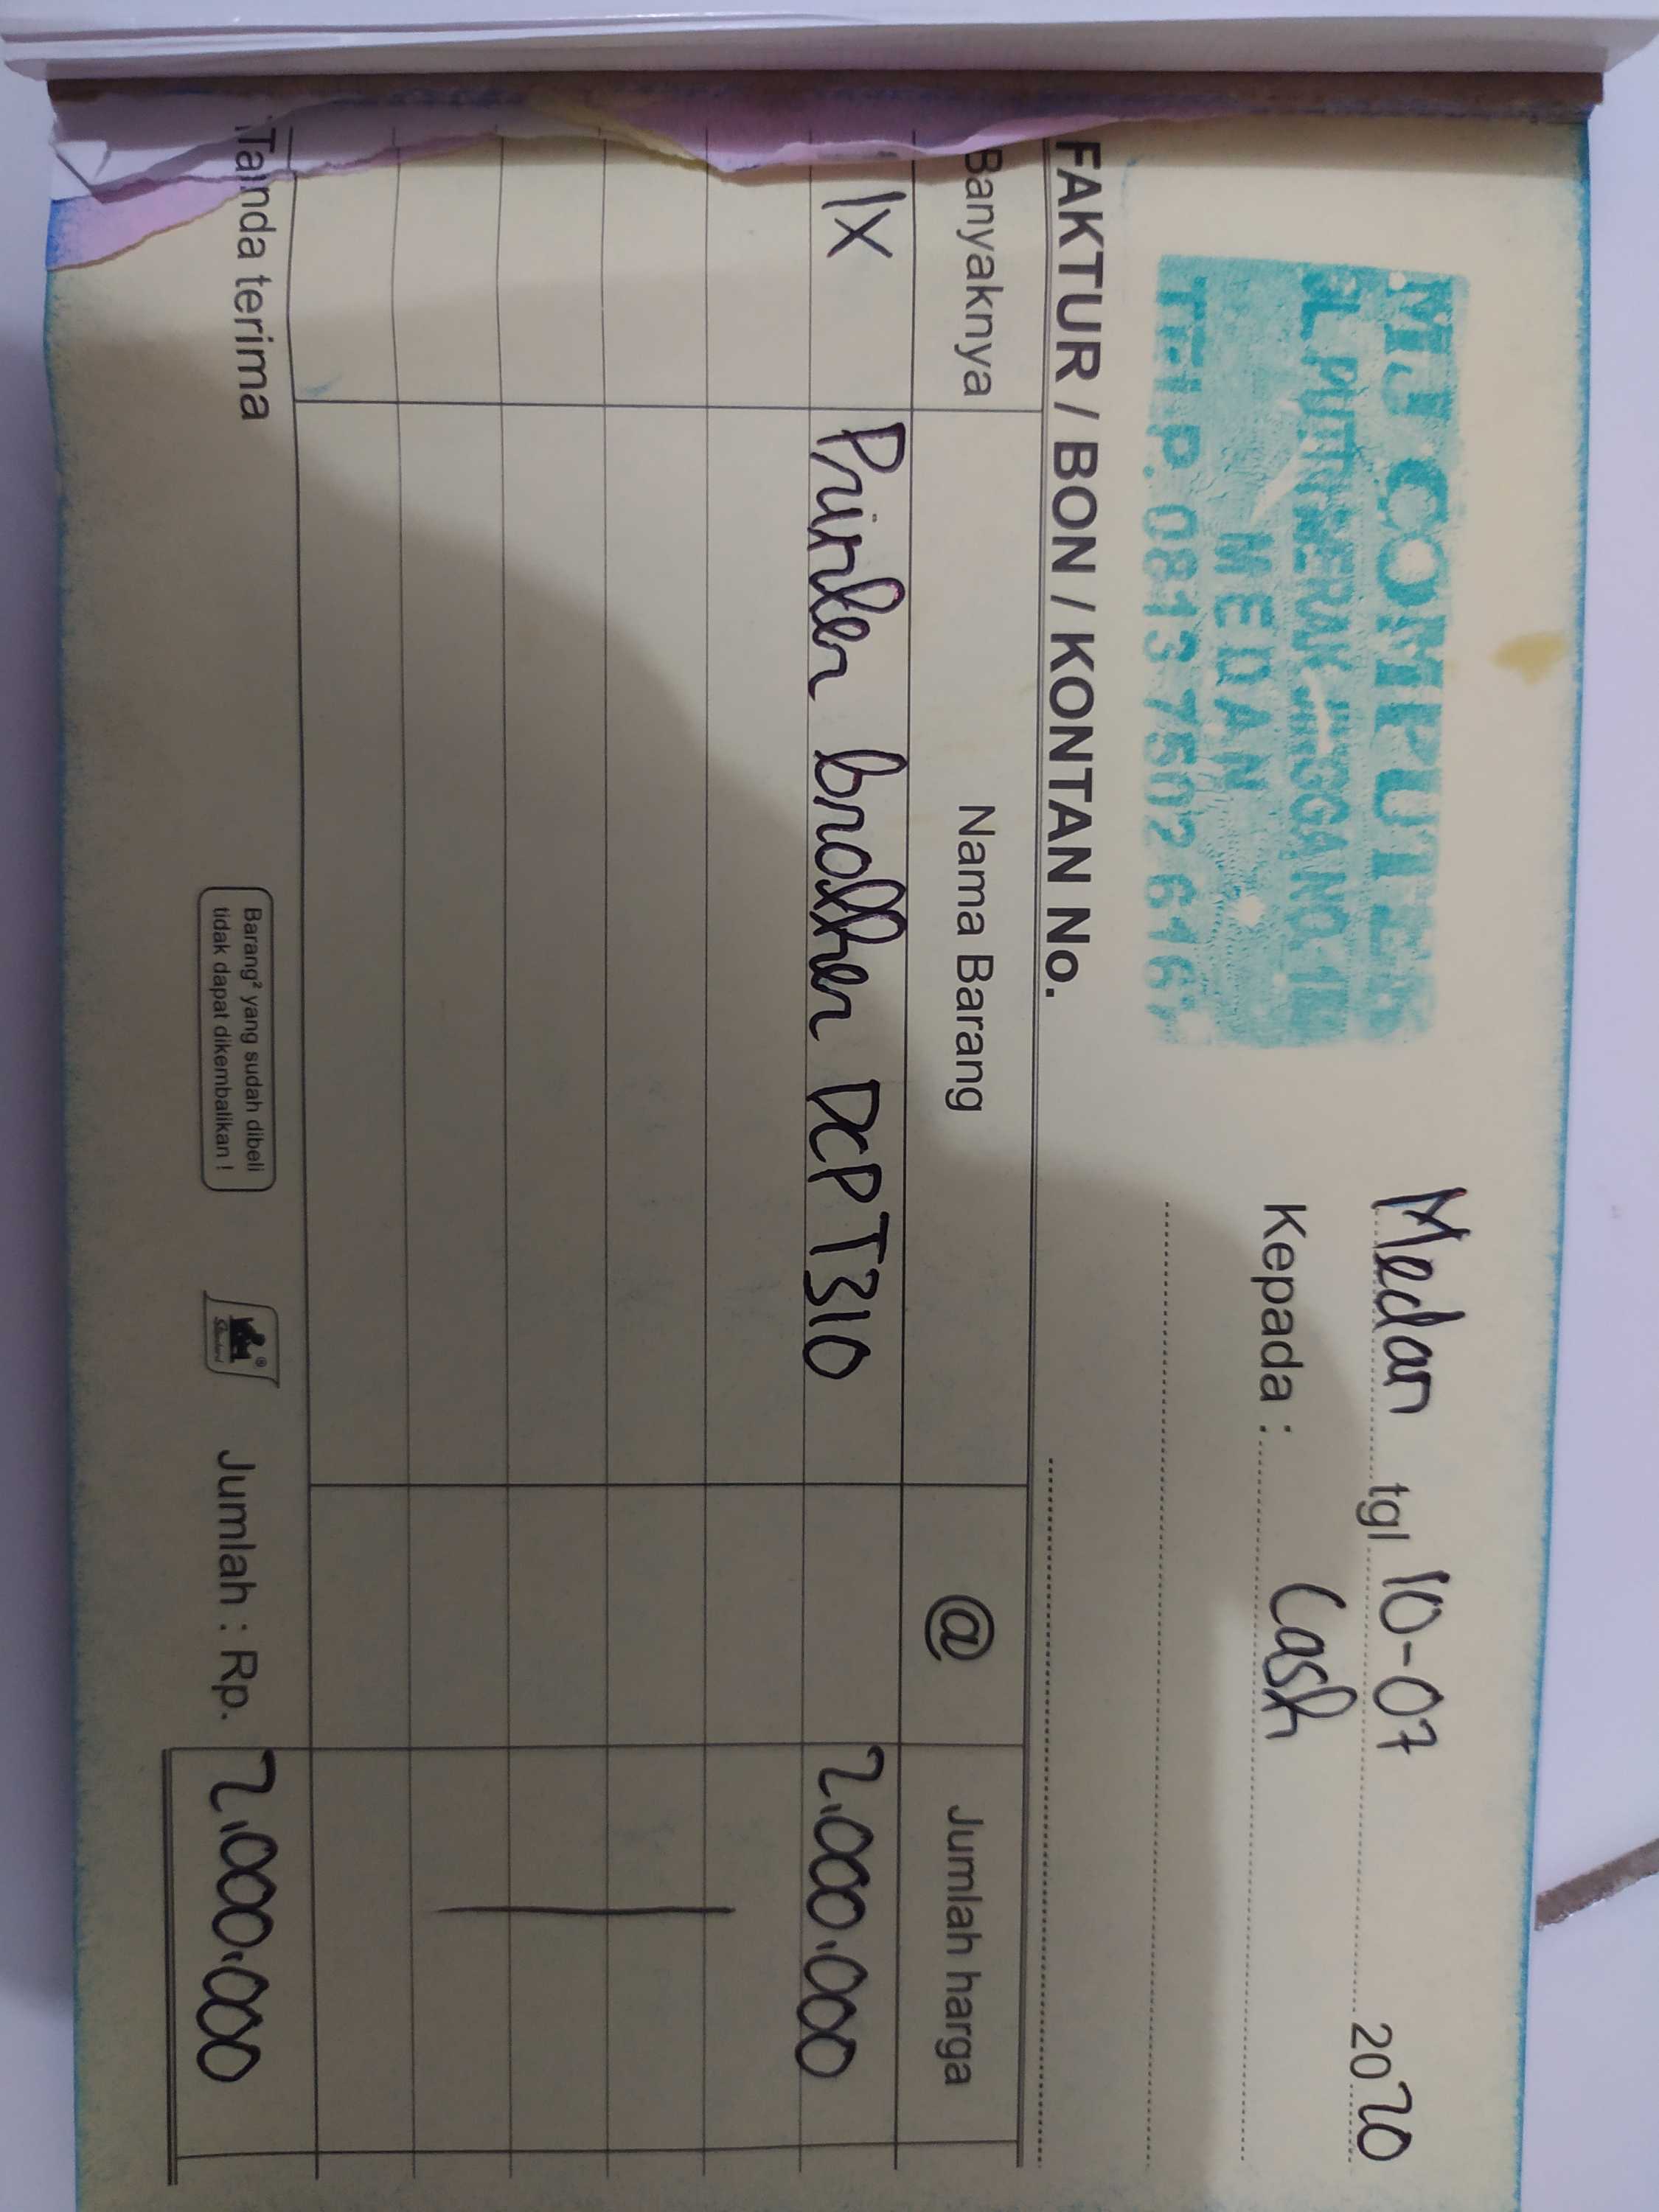 MJ COMPUTER
JL. PUTRI MERAK JINGGA NO. 1
MEDAN
TELP. 0813 7502 616
Medan tgl 10-07 2020
Kepada : Cash
FAKTUR / BON / KONTAN No.
Banyaknya Nama Barang @ Jumlah harga
1X Printer brother DCP T310 2.000.000
Tanda terima
Barang² yang sudah dibeli
tidak dapat dikembalikan !
Jumlah : Rp. 2.000.000